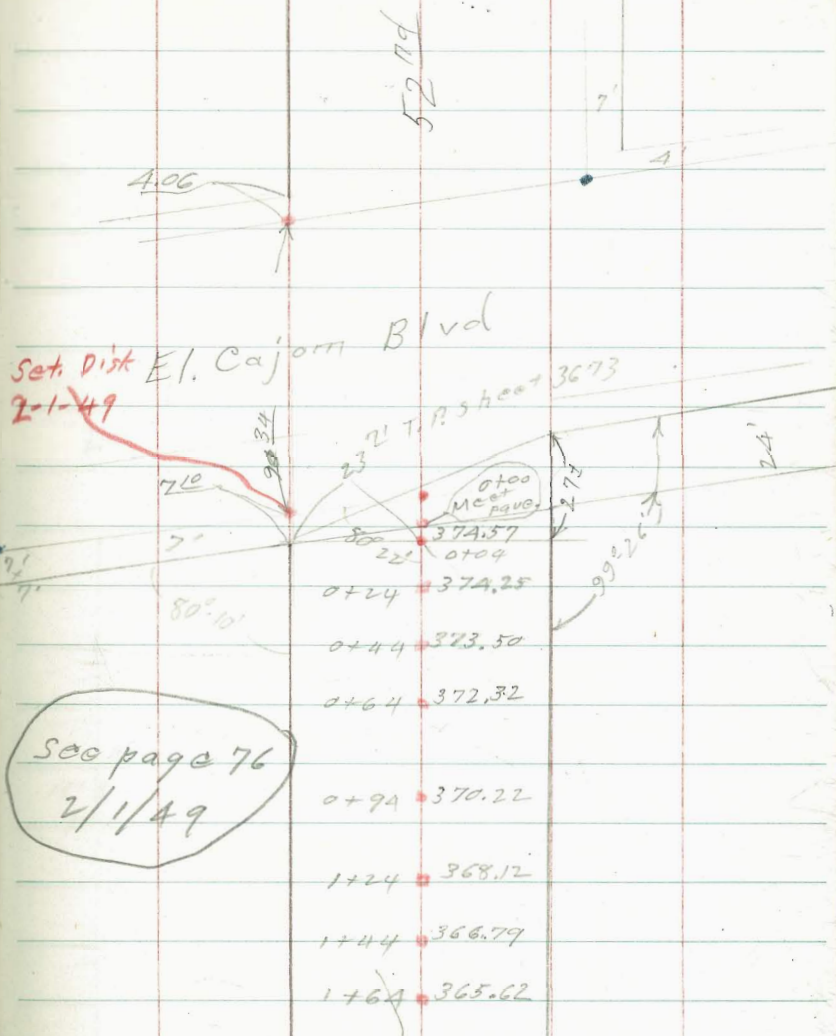 52nd
7'
4'
4.06
El. Cajon Blvd
Set. Disk
2-1-49
34
2' T.P. sheet 3673
23
24'
7 10
0+00
Meet
pave.
27
7'
374.57
0+04
99°26'
7'
7'
80°-10'
0+24 374.25
0+44 373.50
0+64 372.32
See page 76
2/1/49
0+94 370.22
1+24 368.12
1+44 366.79
1+64 365.62